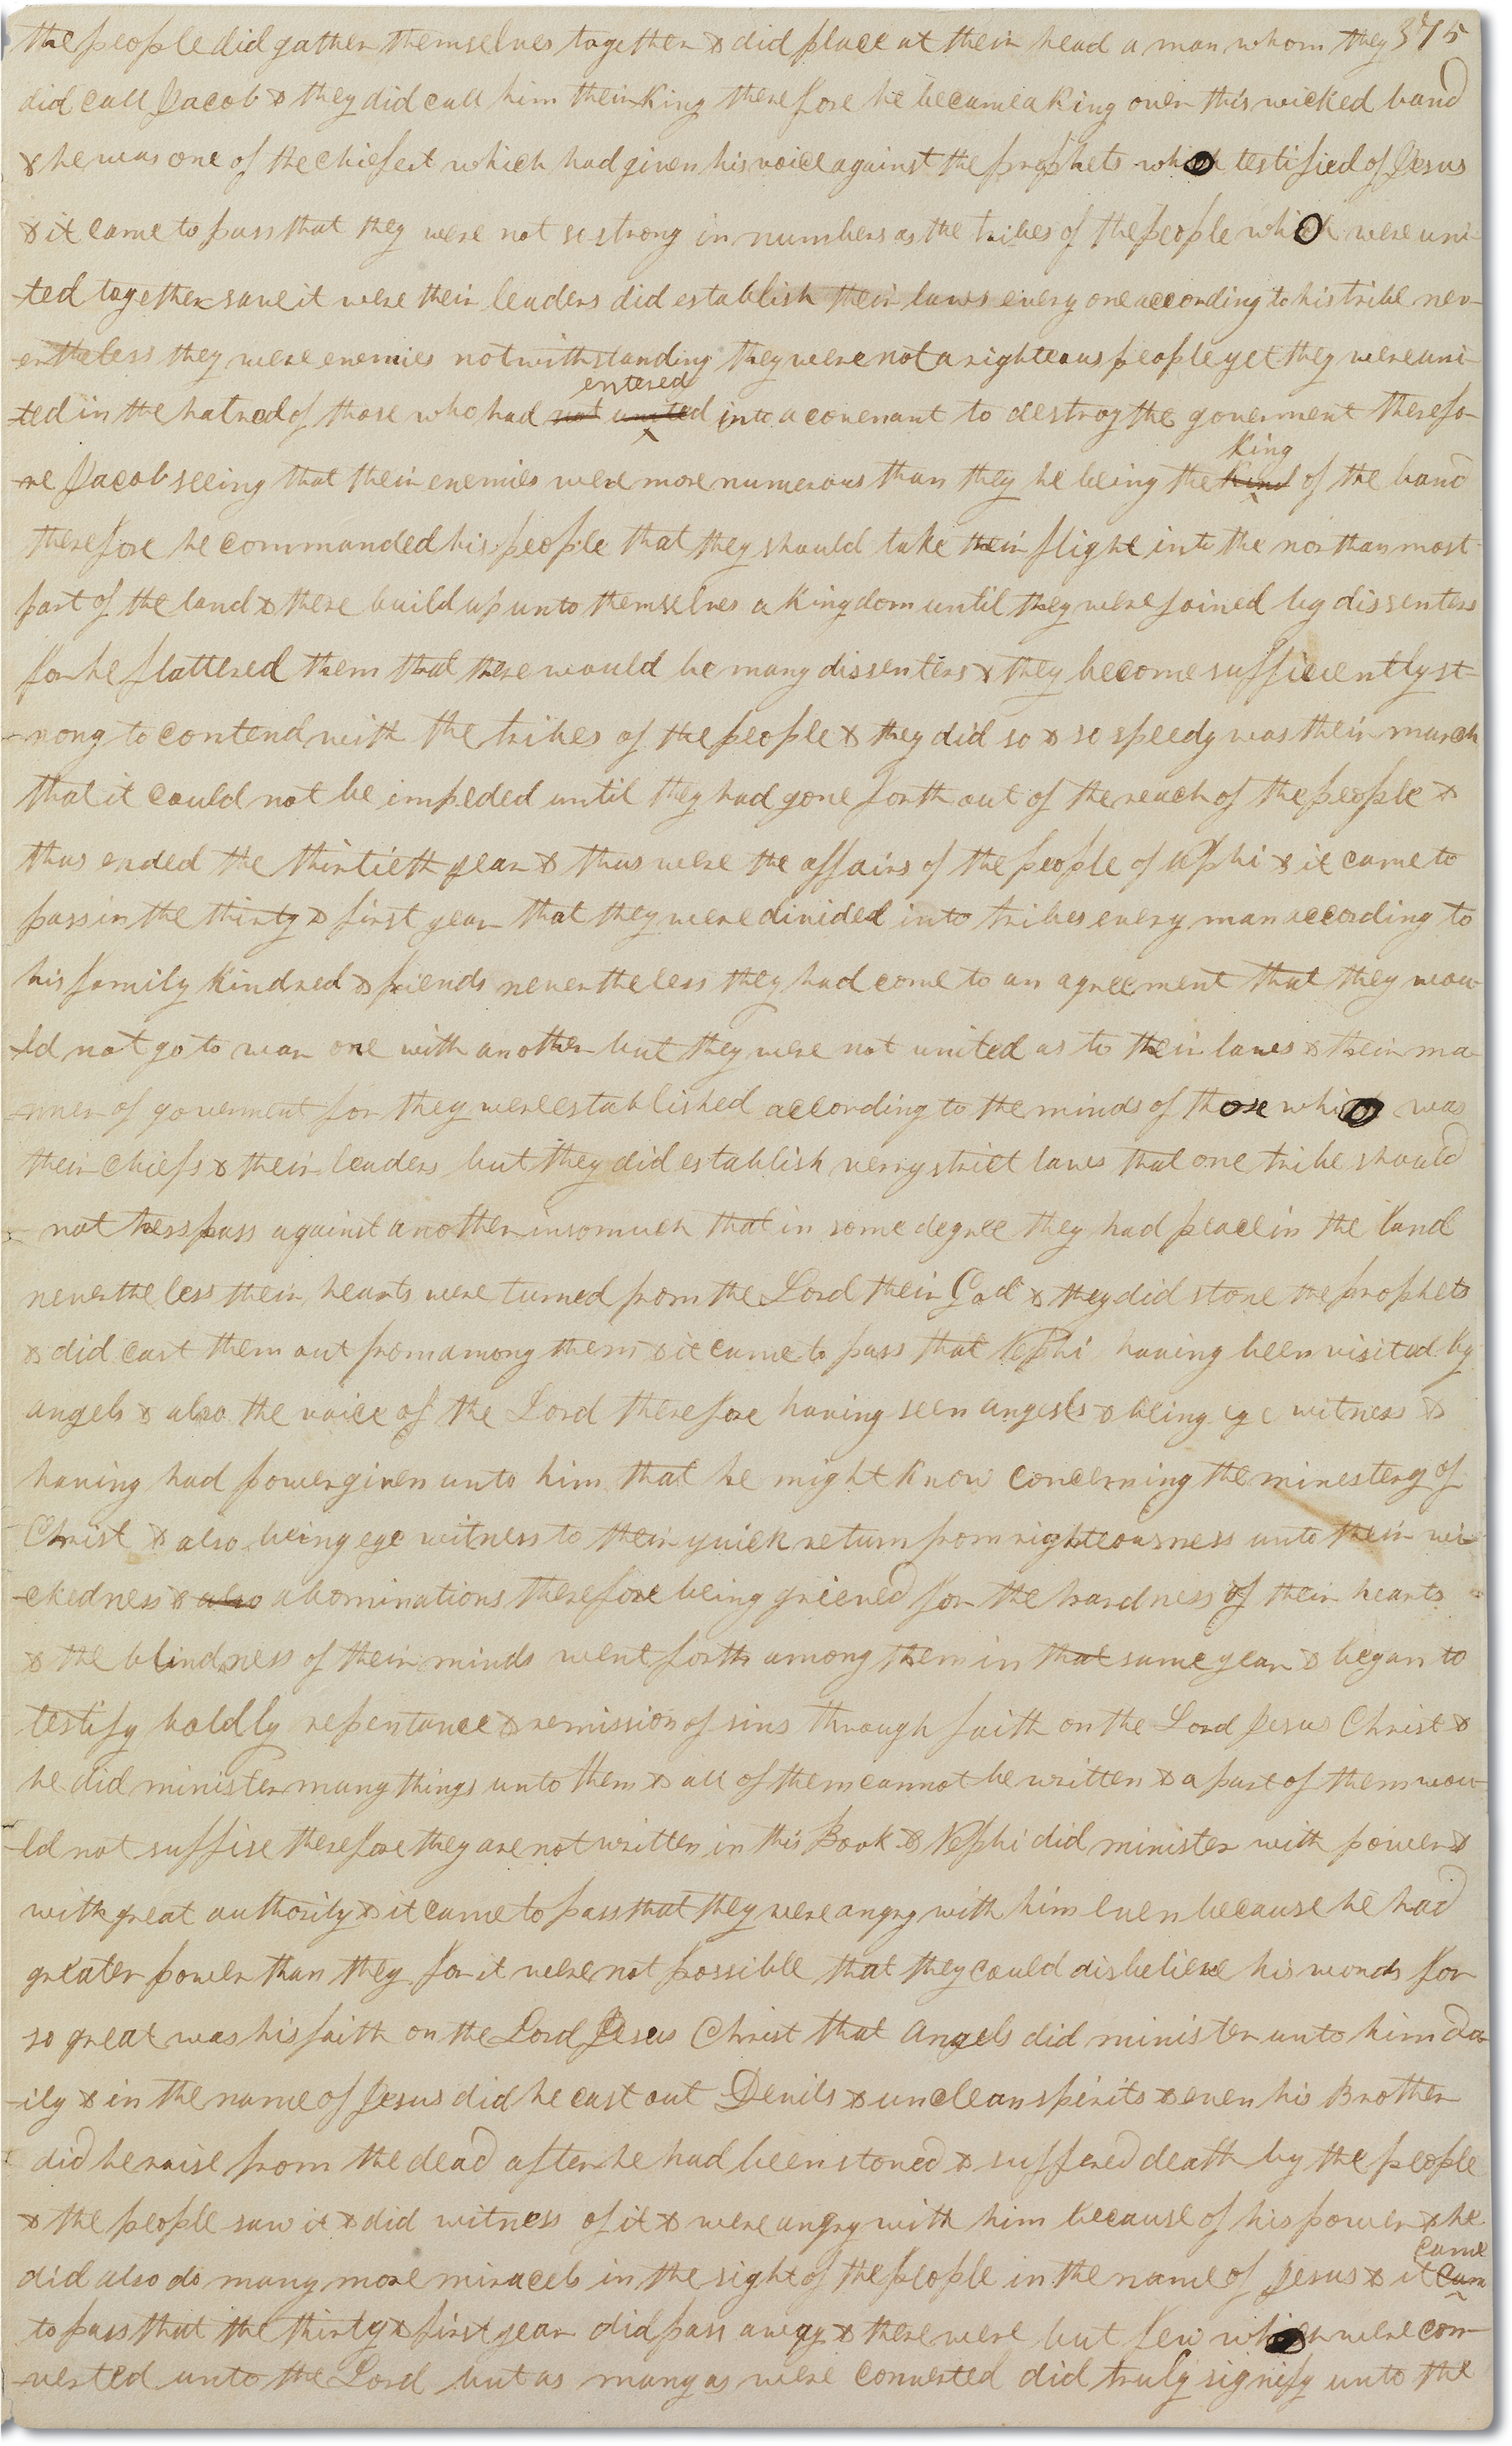 the people did gather themselves together & did place at their head a man whom they 375
did call Jacob & they did call him their King therefore he became a King over this wicked band
& he was one of the chiefest which had given his voice against the prophets who testified of Jesus
& it came to pass that they were not so strong in numbers as the tribes of the people who were uni-
-ted together save it were their leaders did establish their laws every one according to his tribe nev-
-ertheless they were enemies notwithstanding they were not a righteous people yet they were uni-
entered
-ted in the hatred of those who had not united into a covenant to destroy the goverment therefo-
King
-re Jacob seeing that their enemies were more numerous than they he being the Kind of the band
therefore he commanded his people that they should take their flight into the northan most
part of the land & there build up unto themselves a Kingdom until they were joined by dissenters
for he flattered them that there would be many dissenters & they become sufficiently st-
-rong to contend with the tribes of the people & they did so & so speedy was their march
that it could not be impeded until they had gone forth out of the reach of the people &
thus ended the thirtieth year & thus were the affairs of the people of Nephi & it came to
pass in the thirty & first year that they were divided into tribes every man according to
his family Kindred & friends nevertheless they had come to an agreement that they wou-
-ld not go to war one with another but they were not united as to their laws & their ma-
-nner of goverment for they were established according to the minds of those who was
their chiefs & their leaders but they did establish very strict laws that one tribe should
not tresspass against another insomuch that in some degree they had peace in the land
nevertheless their hearts were turned from the Lord their God & they did stone the prophets
& did cast them out from among them & it came to pass that Nephi having been visited by
angels & also the voice of the Lord therefore having seen angels & being eye witness &
having had power given unto him that he might know concerning the minestery of
Christ & also being eye witness to their quick return from righteousness unto their wi-
-ckedness & also abominations therefore being grieved for the hardness of their hearts
& the blindness of their minds went forth among them in that same year & began to
testify boldly repentance & remission of sins through faith on the Lord Jesus Christ &
he did minister many things unto them & all of them cannot be written & a part of them wou-
-ld not suffise therefore they are not written in this Book & Nephi did minister with power &
with great authority & it came to pass that they were angry with him even because he had
greater power than they for it were not possible that they could disbelieve his words for
so great was his faith on the Lord Jesus Christ that angels did minister unto him da-
-ily & in the name of Jesus did he cast out Devils & unclean spirits & even his Brother
did he raise from the dead after he had been stoned & suffered death by the people
& the people saw it & did witness of it & were angry with him because of his power & he
came
did also do many more miracels in the sight of the people in the name of Jesus & it cam
to pass that the thirty & first year did pass away & there were but few who were con-
-verted unto the Lord but as many as were converted did truly signify unto the